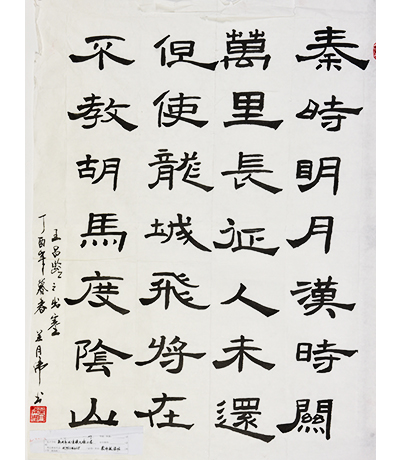 秦時明月漢時關
萬里長征人未還
但使龍城飛將在
不教胡馬度陰山
王昌龄之出塞
丁酉年暮春 书